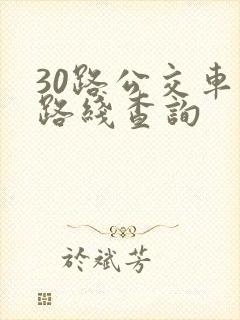 30路公交車
路綫查詢
於斌芳